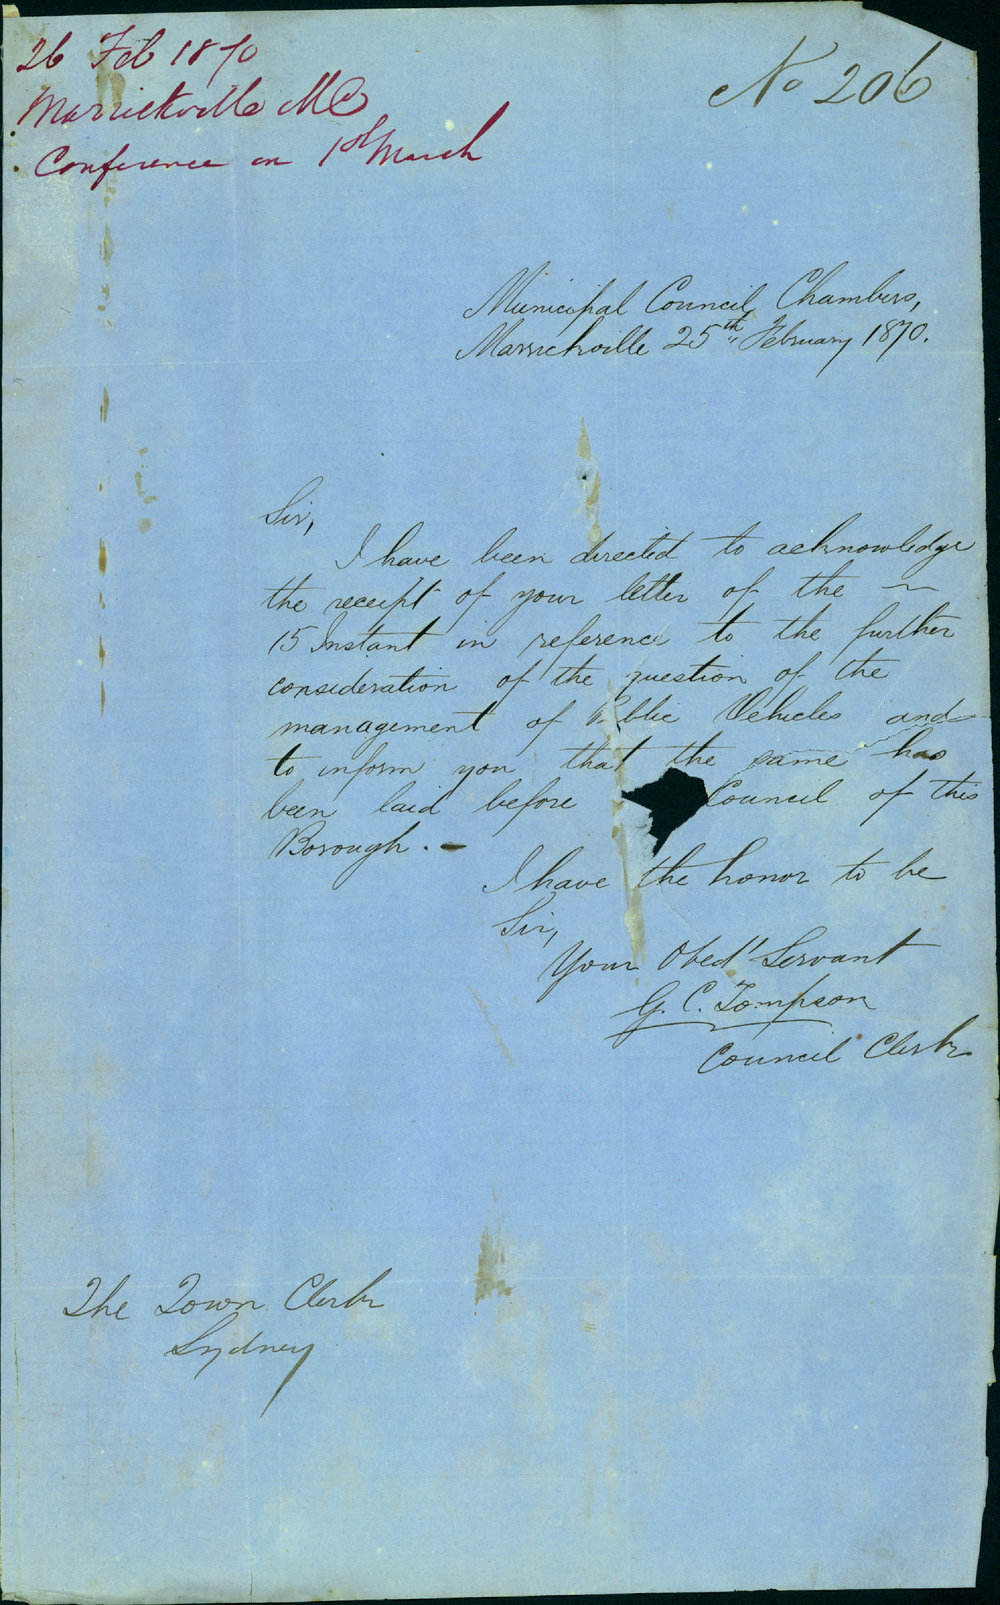 26 Feb 1870
Marrickville MC
Conference on 1st March
No 206
Municipal Council Chambers,
Marrickville 25th February 1870.
Sir,
I have been directed to acknowledge
the receipt of your letter of the
15 Instant in reference to the further
consideration of the question of the
management of Public Vehicles and
to inform you that the same has
been laid before Council of this
Borough. -
I have the honor to be
Sir,
Your Obedt Servant
G. C. Tompson
Council Clerk
The Town Clerk
Sydney